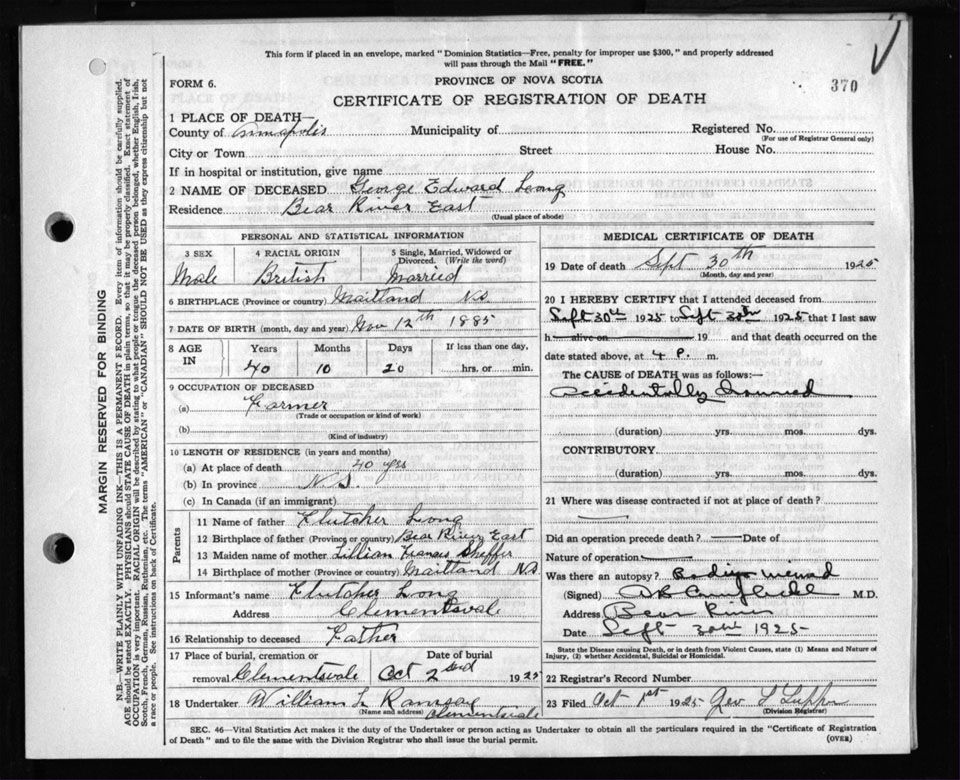 This form if placed in an envelope, marked "Dominion Statistics—Free, penalty for improper use $300," and properly addressed
will pass through the Mail "FREE."
FORM 6.
PROVINCE OF NOVA SCOTIA
370
CERTIFICATE OF REGISTRATION OF DEATH
1 PLACE OF DEATH—
County of Annapolis Municipality of Registered No.
(For use of Registrar General only)
City or Town Street House No.
If in hospital or institution, give name
2 NAME OF DECEASED George Edward Long
Residence Bear River East
(Usual place of abode)
PERSONAL AND STATISTICAL INFORMATION
3 SEX 4 RACIAL ORIGIN 5 Single, Married, Widowed or
Divorced. (Write the word)
Male British Married
6 BIRTHPLACE (Province or country) Maitland N.S.
7 DATE OF BIRTH (month, day and year) Nov 12th 1885
8 AGE IN Years Months Days If less than one day,
40 10 20 hrs. or min.
9 OCCUPATION OF DECEASED
(a) Farmer
(Trade or occupation or kind of work)
(b)
(Kind of industry)
10 LENGTH OF RESIDENCE (in years and months)
(a) At place of death 40 yrs
(b) In province N.S.
(c) In Canada (if an immigrant)
Parents
11 Name of father Flutcher Long
12 Birthplace of father (Province or country) Bear River East
13 Maiden name of mother Lillian Francis Sheffer
14 Birthplace of mother (Province or country) Maitland N.S.
15 Informant's name Flutcher Long
Address Clementsvale
16 Relationship to deceased Father
17 Place of burial, cremation or Date of burial
removal Clementsvale Oct 2nd 1925
18 Undertaker William L Ramsay
(Name and address) Clementsvale
MEDICAL CERTIFICATE OF DEATH
19 Date of death Sept 30th 1925
(Month, day and year)
20 I HEREBY CERTIFY that I attended deceased from
Sept 30th 1925 to Sept 30th 1925 that I last saw
h alive on 19 and that death occurred on the
date stated above, at 4 P. m.
The CAUSE of DEATH was as follows:—
Accidentally Drowned
(duration) yrs. mos. dys.
CONTRIBUTORY
(duration) yrs. mos. dys.
21 Where was disease contracted if not at place of death?
Did an operation precede death? — Date of
Nature of operation
Was there an autopsy? Body viewed
(Signed) Campbell M.D.
Address Bear River
Date Sept 30th 1925
State the Disease causing Death, or in death from Violent Causes, state (1) Means and Nature of
Injury, (2) whether Accidental, Suicidal or Homicidal.
22 Registrar's Record Number
23 Filed Oct 1st 1925 Geo
(Division Registrar)
SEC. 46—Vital Statistics Act makes it the duty of the Undertaker or person acting as Undertaker to obtain all the particulars required in the "Certificate of Registration
of Death" and to file the same with the Division Registrar who shall issue the burial permit.
(OVER)
MARGIN RESERVED FOR BINDING
N.B.—WRITE PLAINLY WITH UNFADING INK—THIS IS A PERMANENT RECORD. Every item of information should be carefully supplied.
AGE should be stated EXACTLY. PHYSICIANS should STATE CAUSE OF DEATH in plain terms, so that it may be properly classified. Exact statement of
OCCUPATION is very important. RACIAL ORIGIN will be described by stating to what people or tongue the deceased person belonged, whether English, Irish,
Scotch, French, German, Russian, Ruthenian, etc. The terms "AMERICAN" or "CANADIAN" SHOULD NOT BE USED as they express citizenship but not
a race or people. See instructions on back of Certificate.